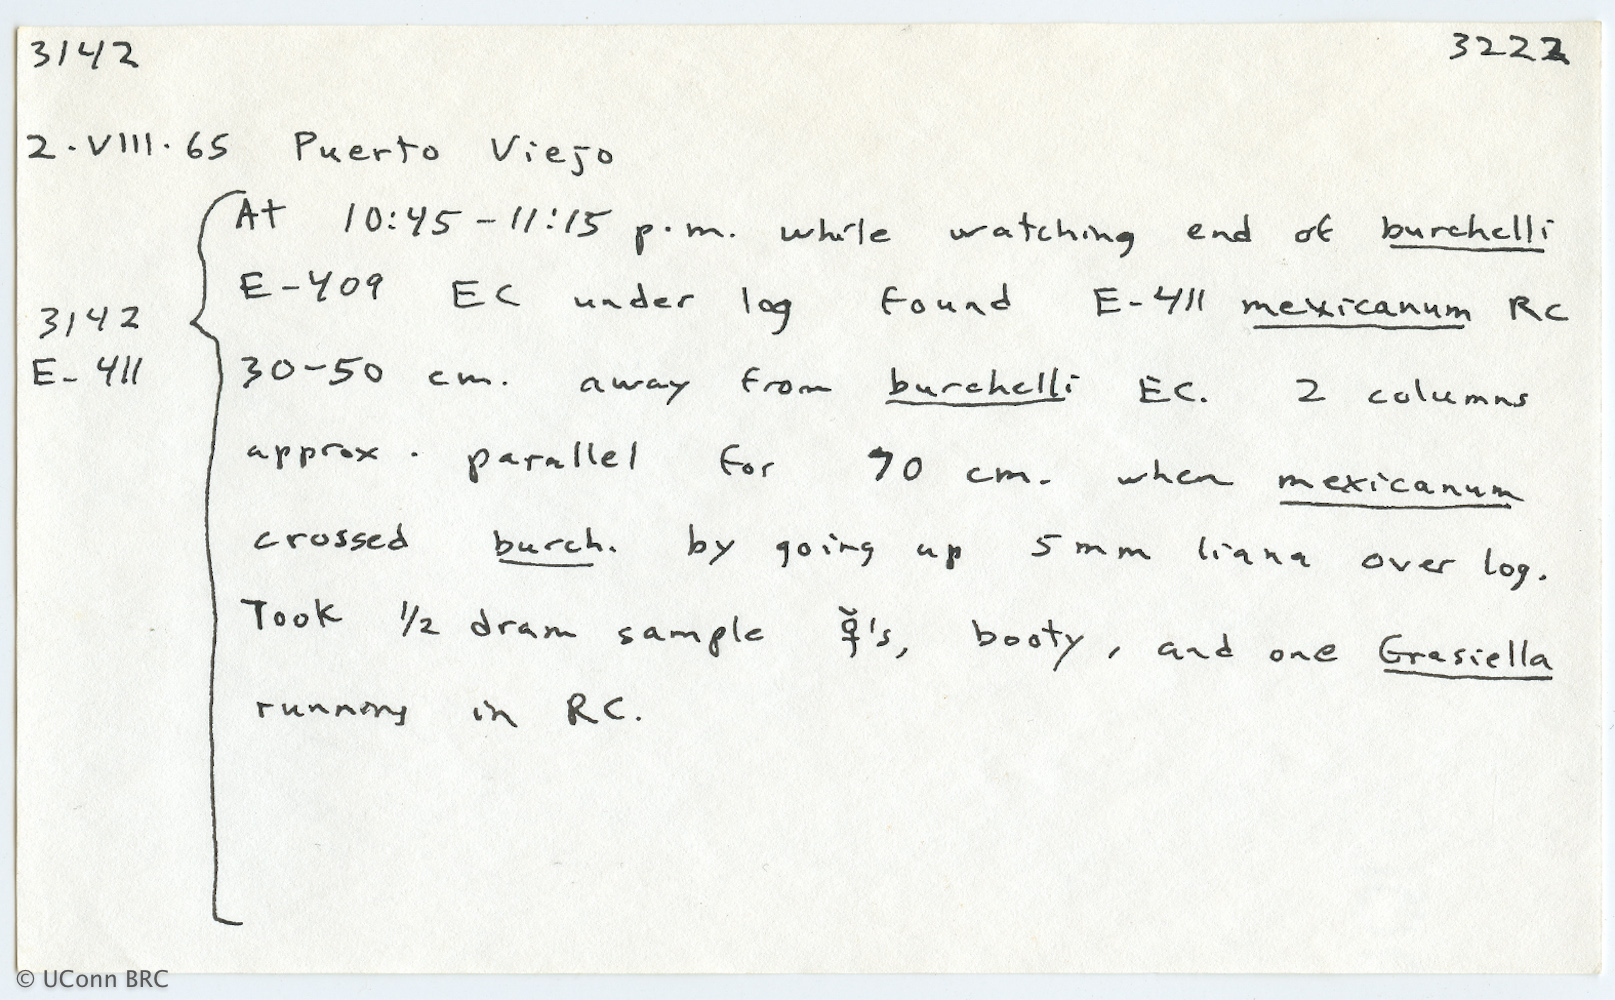 3142 3222
2.VIII.65 Puerto Viejo
At 10:45-11:15 p.m. while watching end of burchelli
E-409 EC under log found E-411 mexicanum RC
3142
E-411
30-50 cm. away from burchelli EC. 2 columns
approx. parallel for 70 cm. when mexicanum
crossed burch. by going up 5mm liana over log.
Took 1/2 dram sample ☿'s, booty, and one Grasiella
running in RC.
© UConn BRC